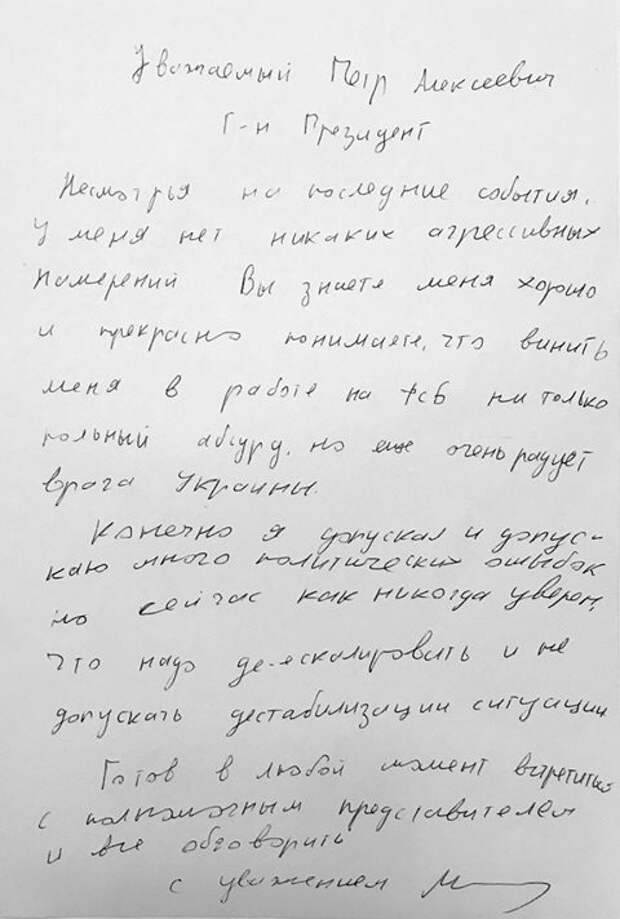 Уважаемый Петр Алексеевич
Г-н Президент
Несмотрья на последние события,
у меня нет никаких агрессивных
намерений Вы знаете меня хорошо
и прекрасно понимаете, что винить
меня в работе на ФСБ ни только
полный абсурд, но еще очень радует
врага Украины.
Конечно я допускал и допус-
каю много политических ошибок
но сейчас как никогда уверен,
что надо де-ескалировать и не
допускать дестабилизации ситуации
Готов в любой момент встретиться
с полномочным представителем
и все обговорить
с уважением